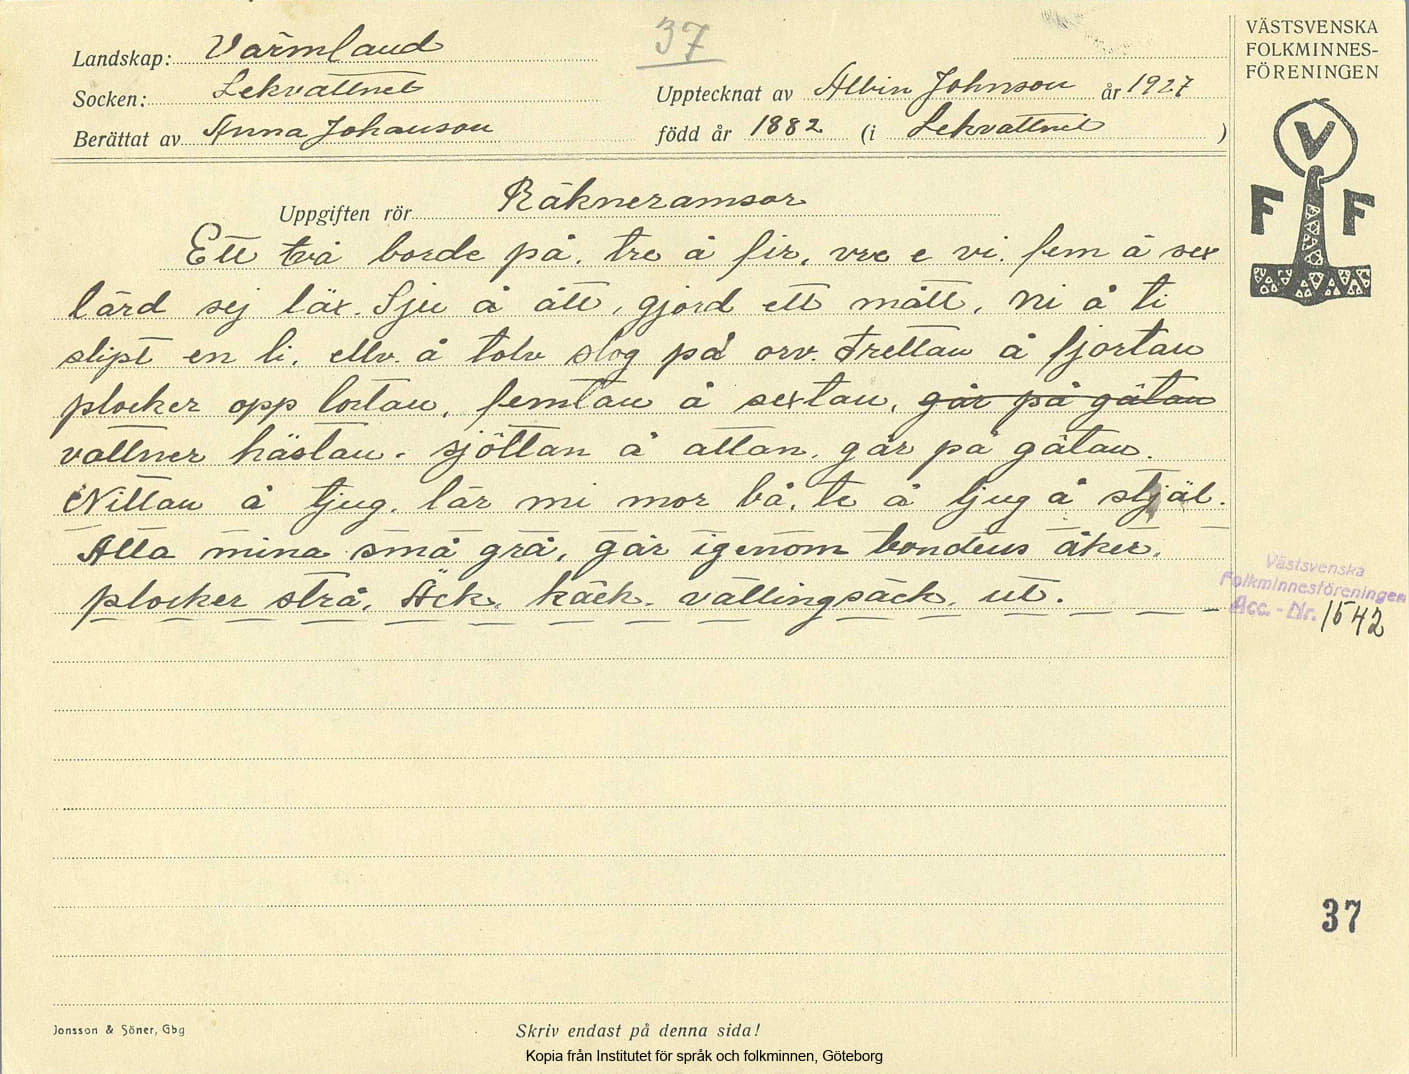 Landskap: Värmland
37
Socken: Lekvattnet
Upptecknat av Albin Johnson år 1927
Berättat av Anna Johanson
född år 1882 (i Lekvattnet )
VÄSTSVENSKA
FOLKMINNES-
FÖRENINGEN
V
F F
Uppgiften rör Räkneramsor
Ett två borde på, tre å fir, vre e vi, fem å sex
lärd sej läx. Sju å ått, gjord ett mått, ni å ti
slipt en li, ellv å tolv slog på orv. Trettan å fjortan
plocker opp lortan, femtan å sextan, går på gåtan
vattner hästan. sjöttan å attan, går på gåtan.
Nittan å tjug, lär mi mor bå, te å ljug å stjäl.
Alla mina små grå, går igenom bondens åker,
plocker strå, Äck, käck, vällingsäck, ut.
Västsvenska
Folkminnesföreningen
Acc. - Nr. 1542
37
Jonsson & Söner, Gbg
Skriv endast på denna sida!
Kopia från Institutet för språk och folkminnen, Göteborg